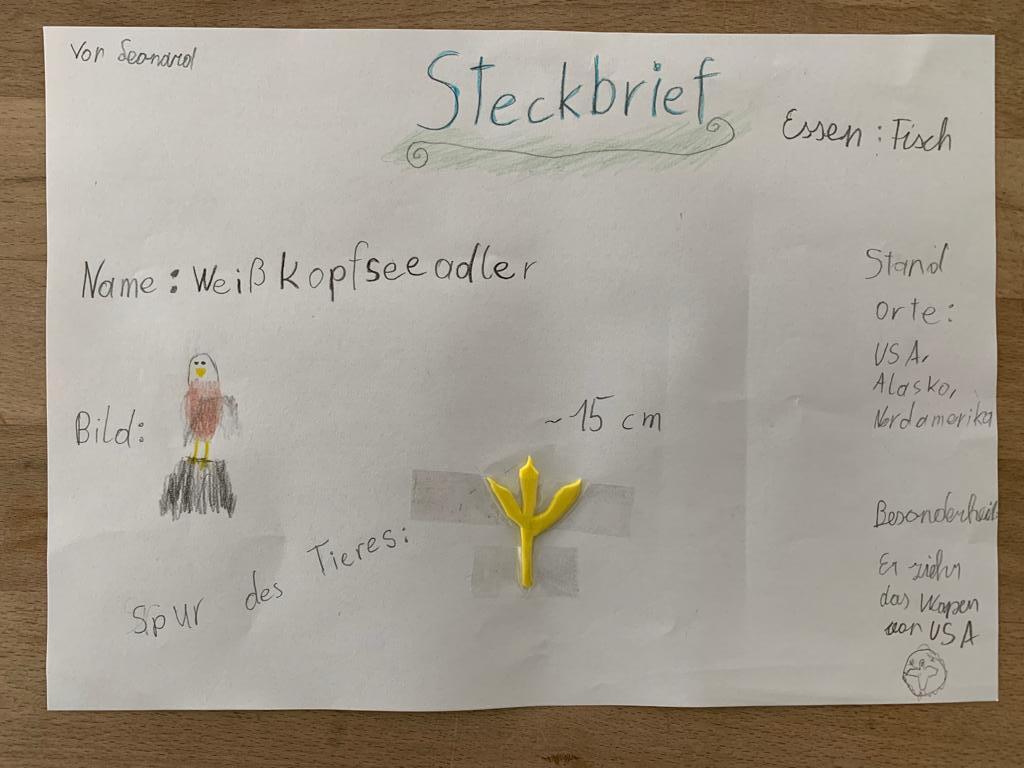 Von Leonard
Steckbrief
Essen: Fisch
Name: Weißkopfseeadler
Stand
orte:
USA,
Alaska,
Nordamerika
Bild:
~15 cm
Spur des Tieres:
Besonderheit:
Er ziehr
das Wapen
von USA